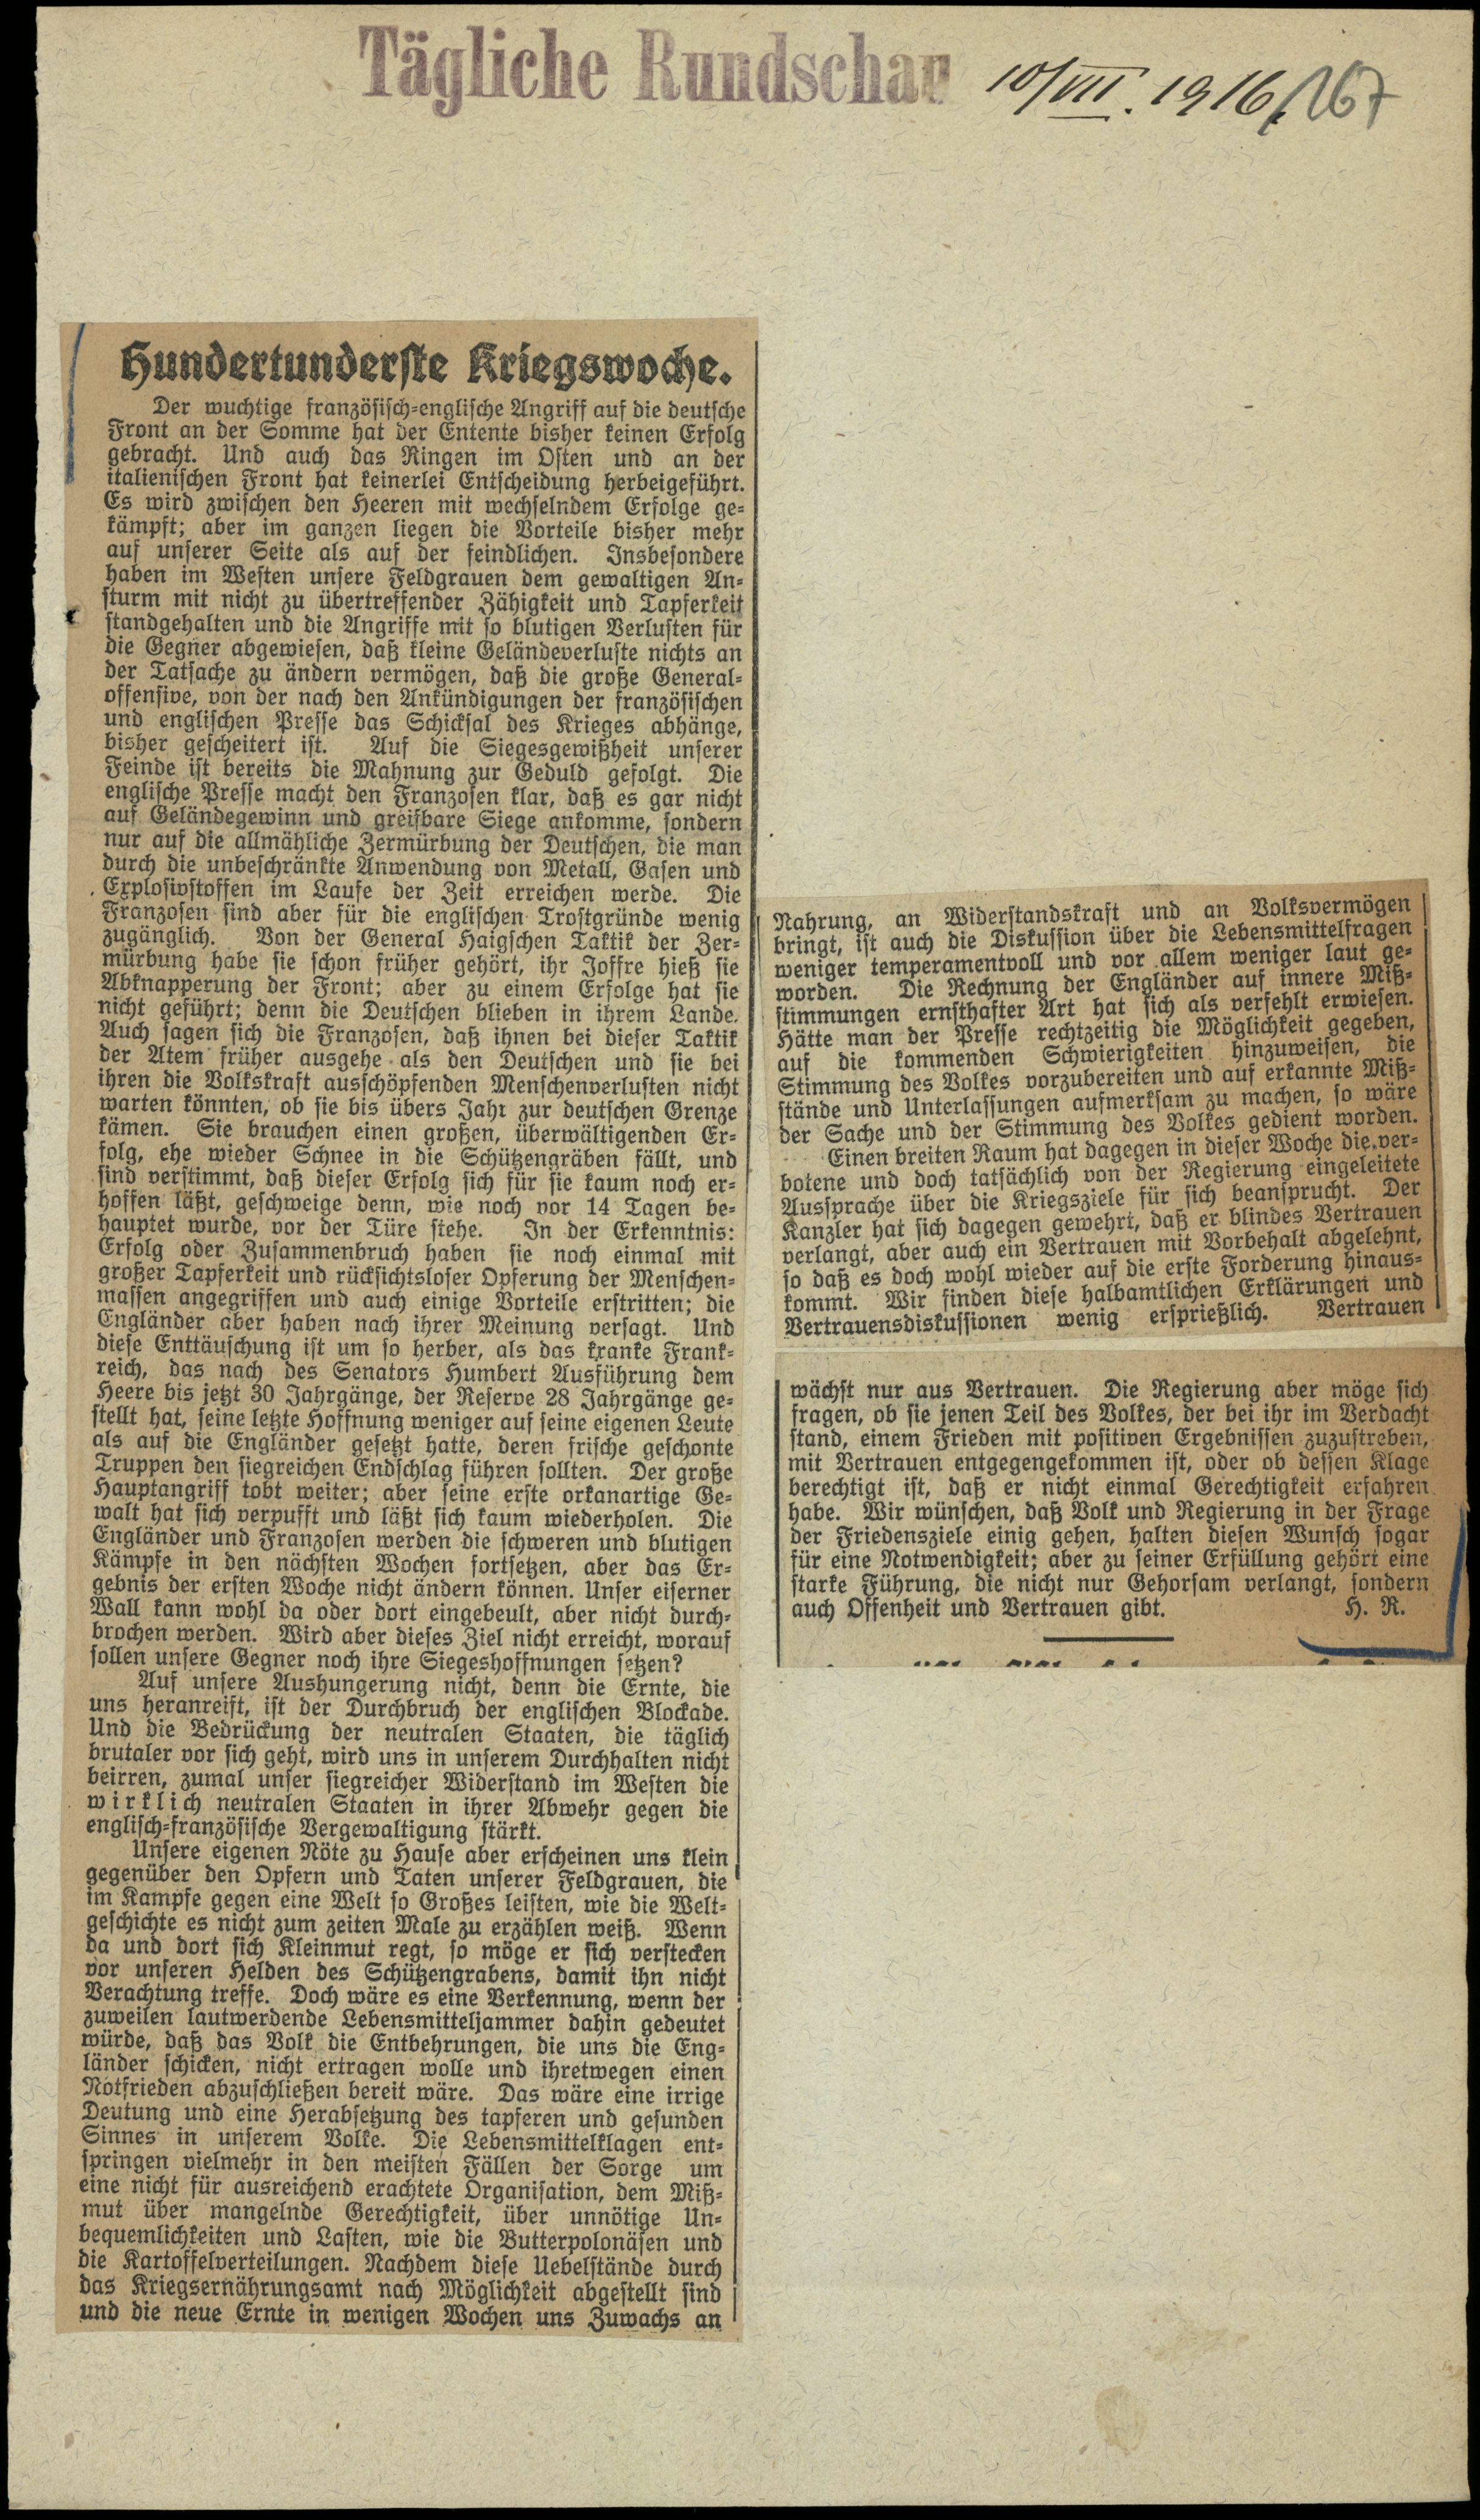 Tägliche Rundschau
10/VII. 1916, 267
Hundertunderste Kriegswoche.
Der wuchtige französisch-englische Angriff auf die deutsche
Front an der Somme hat der Entente bisher keinen Erfolg
gebracht. Und auch das Ringen im Osten und an der
italienischen Front hat keinerlei Entscheidung herbeigeführt.
Es wird zwischen den Heeren mit wechselndem Erfolge ge-
kämpft; aber im ganzen liegen die Vorteile bisher mehr
auf unserer Seite als auf der feindlichen. Insbesondere
haben im Westen unsere Feldgrauen dem gewaltigen An-
sturm mit nicht zu übertreffender Zähigkeit und Tapferkeit
standgehalten und die Angriffe mit so blutigen Verlusten für
die Gegner abgewiesen, daß kleine Geländeverluste nichts an
der Tatsache zu ändern vermögen, daß die große General-
offensive, von der nach den Ankündigungen der französischen
und englischen Presse das Schicksal des Krieges abhänge,
bisher gescheitert ist. Auf die Siegesgewißheit unserer
Feinde ist bereits die Mahnung zur Geduld gefolgt. Die
englische Presse macht den Franzosen klar, daß es gar nicht
auf Geländegewinn und greifbare Siege ankomme, sondern
nur auf die allmähliche Zermürbung der Deutschen, die man
durch die unbeschränkte Anwendung von Metall, Gasen und
Explosivstoffen im Laufe der Zeit erreichen werde. Die
Franzosen sind aber für die englischen Trostgründe wenig
zugänglich. Von der General Haigschen Taktik der Zer-
mürbung habe sie schon früher gehört, ihr Joffre hieß sie
Abknapperung der Front; aber zu einem Erfolge hat sie
nicht geführt; denn die Deutschen blieben in ihrem Lande.
Auch sagen sich die Franzosen, daß ihnen bei dieser Taktik
der Atem früher ausgehe als den Deutschen und sie bei
ihren die Volkskraft ausschöpfenden Menschenverlusten nicht
warten könnten, ob sie bis übers Jahr zur deutschen Grenze
kämen. Sie brauchen einen großen, überwältigenden Er-
folg, ehe wieder Schnee in die Schützengräben fällt, und
sind verstimmt, daß dieser Erfolg sich für sie kaum noch er-
hoffen läßt, geschweige denn, wie noch vor 14 Tagen be-
hauptet wurde, vor der Türe stehe. In der Erkenntnis:
Erfolg oder Zusammenbruch haben sie noch einmal mit
großer Tapferkeit und rücksichtsloser Opferung der Menschen-
massen angegriffen und auch einige Vorteile erstritten; die
Engländer aber haben nach ihrer Meinung versagt. Und
diese Enttäuschung ist um so herber, als das kranke Frank-
reich, das nach des Senators Humbert Ausführung dem
Heere bis jetzt 30 Jahrgänge, der Reserve 28 Jahrgänge ge-
stellt hat, seine letzte Hoffnung weniger auf seine eigenen Leute
als auf die Engländer gesetzt hatte, deren frische geschonte
Truppen den siegreichen Endschlag führen sollten. Der große
Hauptangriff tobt weiter; aber seine erste orkanartige Ge-
walt hat sich verpufft und läßt sich kaum wiederholen. Die
Engländer und Franzosen werden die schweren und blutigen
Kämpfe in den nächsten Wochen fortsetzen, aber das Er-
gebnis der ersten Woche nicht ändern können. Unser eiserner
Wall kann wohl da oder dort eingebeult, aber nicht durch-
brochen werden. Wird aber dieses Ziel nicht erreicht, worauf
sollen unsere Gegner noch ihre Siegeshoffnungen setzen?
Auf unsere Aushungerung nicht, denn die Ernte, die
uns heranreift, ist der Durchbruch der englischen Blockade.
Und die Bedrückung der neutralen Staaten, die täglich
brutaler vor sich geht, wird uns in unserem Durchhalten nicht
beirren, zumal unser siegreicher Widerstand im Westen die
wirklich neutralen Staaten in ihrer Abwehr gegen die
englisch-französische Vergewaltigung stärkt.
Unsere eigenen Nöte zu Hause aber erscheinen uns klein
gegenüber den Opfern und Taten unserer Feldgrauen, die
im Kampfe gegen eine Welt so Großes leisten, wie die Welt-
geschichte es nicht zum zeiten Male zu erzählen weiß. Wenn
da und dort sich Kleinmut regt, so möge er sich verstecken
vor unseren Helden des Schützengrabens, damit ihn nicht
Verachtung treffe. Doch wäre es eine Verkennung, wenn der
zuweilen lautwerdende Lebensmitteljammer dahin gedeutet
würde, daß das Volk die Entbehrungen, die uns die Eng-
länder schicken, nicht ertragen wolle und ihretwegen einen
Notfrieden abzuschließen bereit wäre. Das wäre eine irrige
Deutung und eine Herabsetzung des tapferen und gesunden
Sinnes in unserem Volke. Die Lebensmittelklagen ent-
springen vielmehr in den meisten Fällen der Sorge um
eine nicht für ausreichend erachtete Organisation, dem Miß-
mut über mangelnde Gerechtigkeit, über unnötige Un-
bequemlichkeiten und Lasten, wie die Butterpolonäsen und
die Kartoffelverteilungen. Nachdem diese Uebelstände durch
das Kriegsernährungsamt nach Möglichkeit abgestellt sind
und die neue Ernte in wenigen Wochen uns Zuwachs an
Nahrung, an Widerstandskraft und an Volksvermögen
bringt, ist auch die Diskussion über die Lebensmittelfragen
weniger temperamentvoll und vor allem weniger laut ge-
worden. Die Rechnung der Engländer auf innere Miß-
stimmungen ernsthafter Art hat sich als verfehlt erwiesen.
Hätte man der Presse rechtzeitig die Möglichkeit gegeben,
auf die kommenden Schwierigkeiten hinzuweisen, die
Stimmung des Volkes vorzubereiten und auf erkannte Miß-
stände und Unterlassungen aufmerksam zu machen, so wäre
der Sache und der Stimmung des Volkes gedient worden.
Einen breiten Raum hat dagegen in dieser Woche die ver-
botene und doch tatsächlich von der Regierung eingeleitete
Aussprache über die Kriegsziele für sich beansprucht. Der
Kanzler hat sich dagegen gewehrt, daß er blindes Vertrauen
verlangt, aber auch ein Vertrauen mit Vorbehalt abgelehnt,
so daß es doch wohl wieder auf die erste Forderung hinaus-
kommt. Wir finden diese halbamtlichen Erklärungen und
Vertrauensdiskussionen wenig ersprießlich. Vertrauen
wächst nur aus Vertrauen. Die Regierung aber möge sich
fragen, ob sie jenen Teil des Volkes, der bei ihr im Verdacht
stand, einem Frieden mit positiven Ergebnissen zuzustreben,
mit Vertrauen entgegengekommen ist, oder ob dessen Klage
berechtigt ist, daß er nicht einmal Gerechtigkeit erfahren
habe. Wir wünschen, daß Volk und Regierung in der Frage
der Friedensziele einig gehen, halten diesen Wunsch sogar
für eine Notwendigkeit; aber zu seiner Erfüllung gehört eine
starke Führung, die nicht nur Gehorsam verlangt, sondern
auch Offenheit und Vertrauen gibt. H. R.